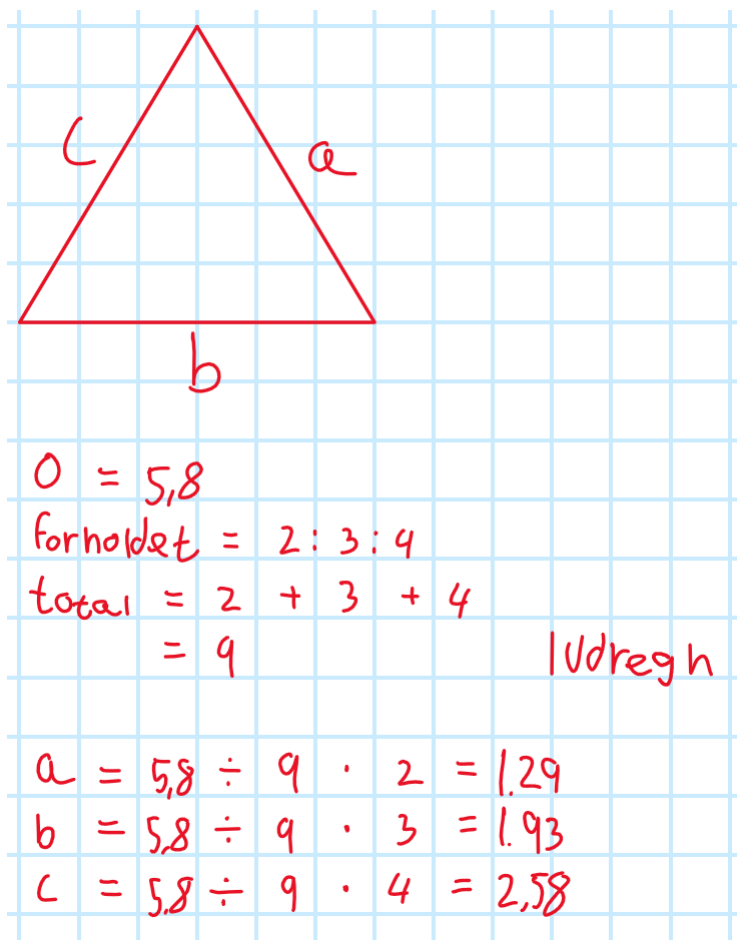 c
a
b
O = 5,8
forholdet = 2 : 3 : 4
total = 2 + 3 + 4
= 9
|Udregn
a = 5,8 ÷ 9 · 2 = 1.29
b = 5,8 ÷ 9 · 3 = 1.93
c = 5,8 ÷ 9 · 4 = 2,58